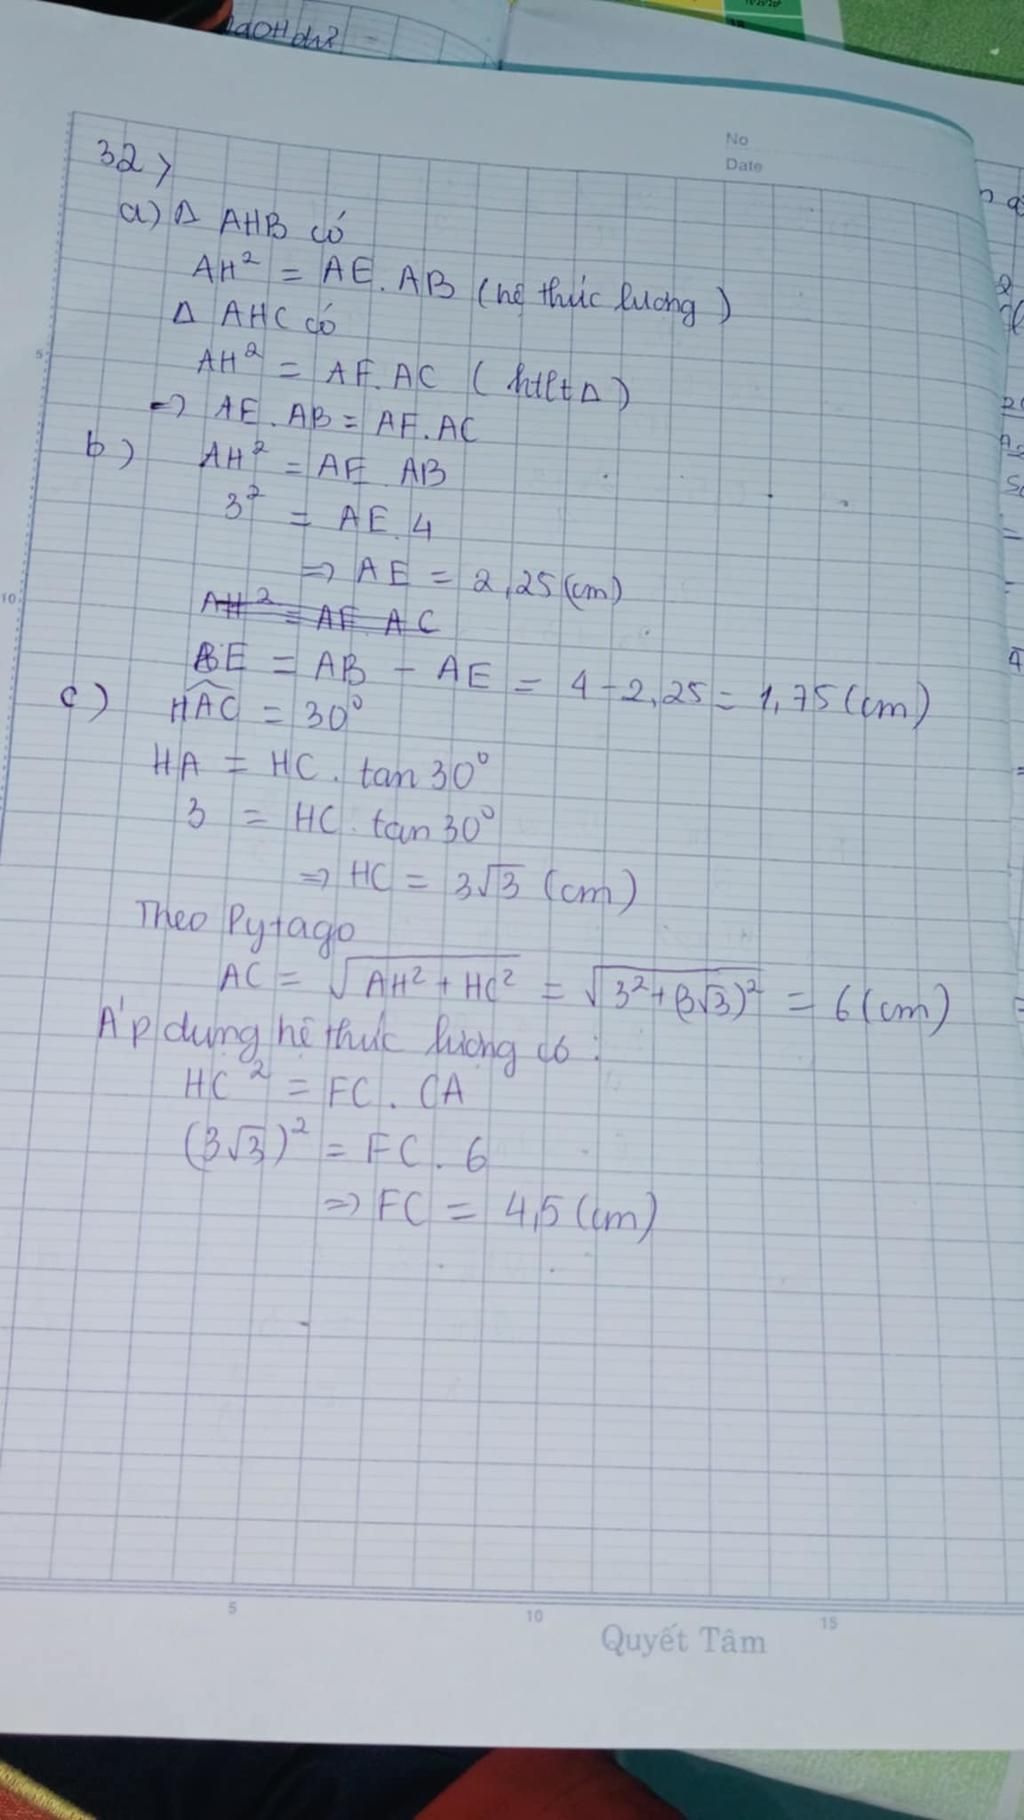 No
Date
32>
a) Δ AHB có
AH² = AE.AB (hệ thức lượng)
Δ AHC có
AH² = AF.AC (htltΔ)
=> AE.AB = AF.AC
b) AH² = AE AB
3² = AE.4
=> AE = 2,25(cm)
AH² = AF AC
BE = AB - AE = 4-2,25 = 1,75(cm)
c) HAC = 30⁰
HA = HC. tan 30⁰
3 = HC. tan 30⁰
=> HC = 3√3 (cm)
Theo Pytago
AC = √AH² + HC² = √3²+(3√3)² = 6(cm)
Áp dụng hệ thức lượng có:
HC² = FC. CA
(3√3)² = FC. 6
=> FC = 4,5(cm)
5
10
5
10
15
Quyết Tâm